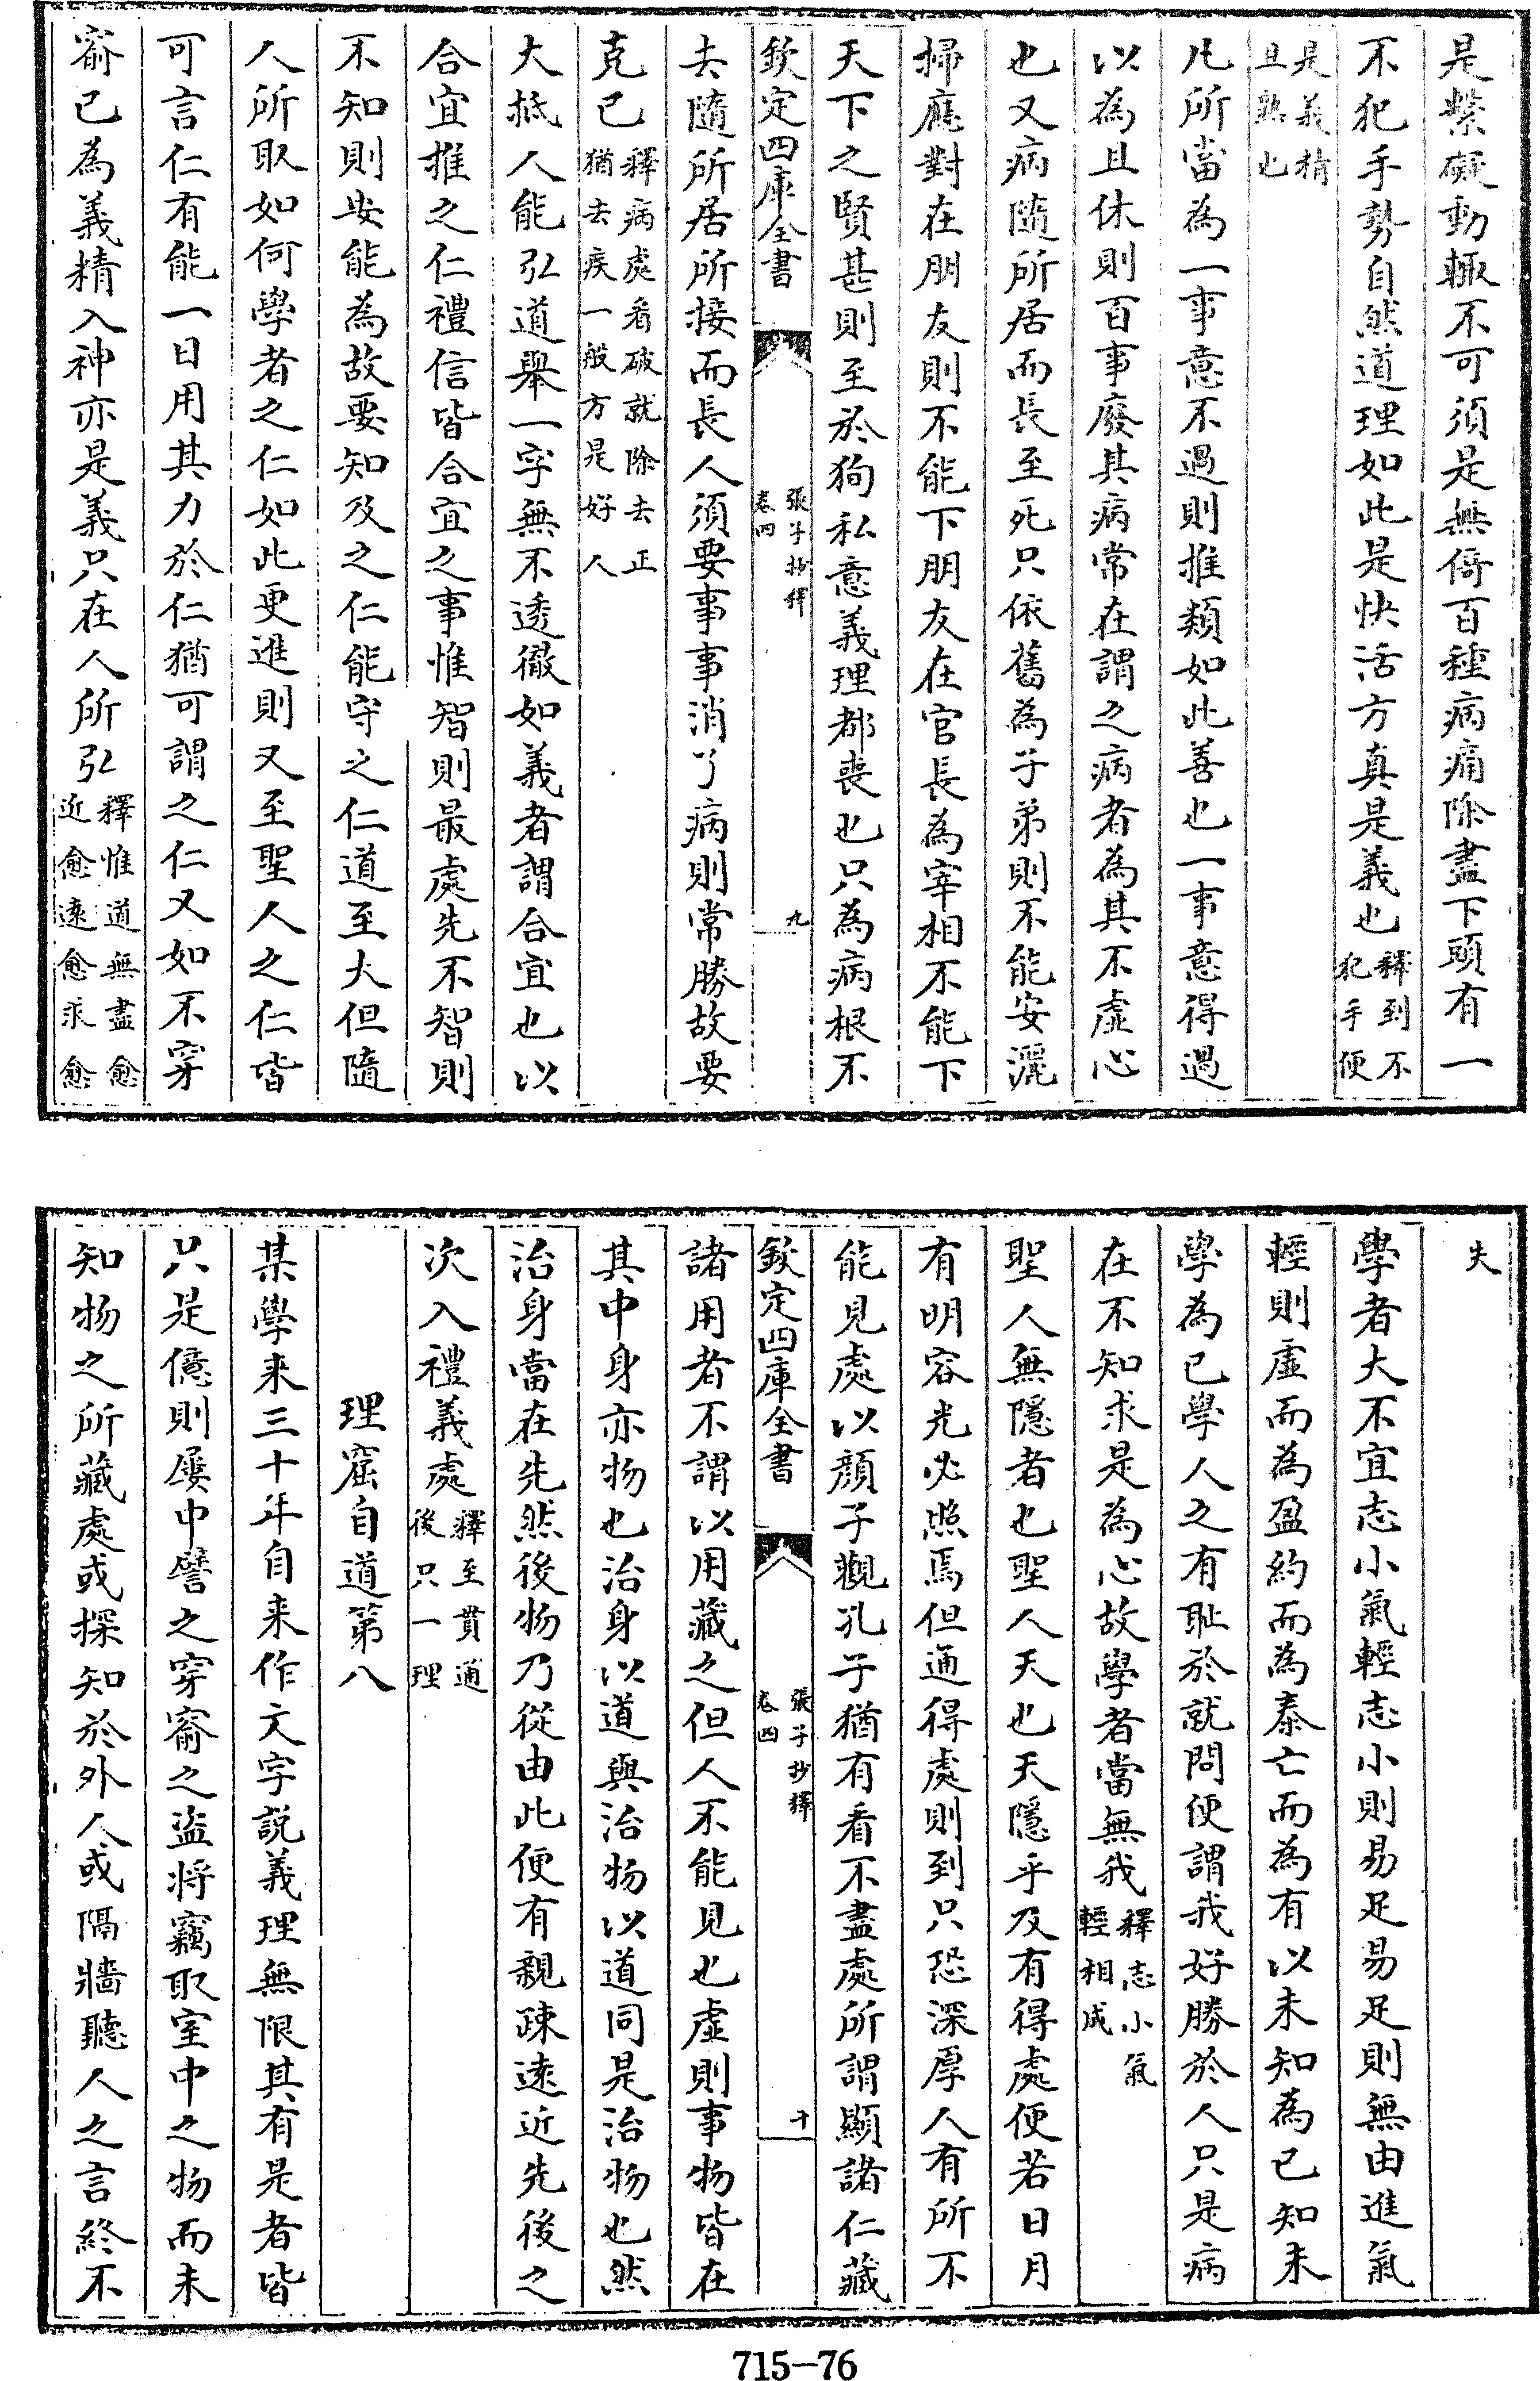 是縈礙動輙不可須是無倚百種病痛除盡下頭有一
不犯手勢自然道理如此是快活方真是義也釋到不犯手便
是義精且熟也
凡所當為一事意不過則推類如此善也一事意得過
以為且休則百事廢其病常在謂之病者為其不虛心
也又病隨所居而長至死只依舊為子弟則不能安灑
掃應對在朋友則不能下朋友在官長為宰相不能下
天下之賢甚則至於狥私意義理都喪也只為病根不
欽定四庫全書 張子抄釋 卷四 九
去隨所居所接而長人須要事事消了病則常勝故要
克己釋病處看破就除去正猶去疾一般方是好人
大抵人能弘道舉一字無不透徹如義者謂合宜也以
合宜推之仁禮信皆合宜之事惟智則最處先不智則
不知則安能為故要知及之仁能守之仁道至大但隨
人所取如何學者之仁如此更進則又至聖人之仁皆
可言仁有能一日用其力於仁猶可謂之仁又如不穿
窬已為義精入神亦是義只在人所弘釋惟道無盡愈近愈遠愈求愈
失
學者大不宜志小氣輕志小則易足易足則無由進氣
輕則虛而為盈約而為泰亡而為有以未知為已知未
學為已學人之有恥於就問便謂我好勝於人只是病
在不知求是為心故學者當無我釋志小氣輕相成
聖人無隱者也聖人天也天隱乎及有得處便若日月
有明容光必照焉但通得處則到只恐深厚人有所不
能見處以顔子觀孔子猶有看不盡處所謂顯諸仁藏
欽定四庫全書 張子抄釋 卷四 十
諸用者不謂以用藏之但人不能見也虛則事物皆在
其中身亦物也治身以道與治物以道同是治物也然
治身當在先然後物乃從由此便有親疎遠近先後之
次入禮義處釋至貫通後只一理
理窟自道第八
某學来三十年自来作文字說義理無限其有是者皆
只是億則屢中譬之穿窬之盜將竊取室中之物而未
知物之所藏處或探知於外人或隔牆聽人之言終不
715-76